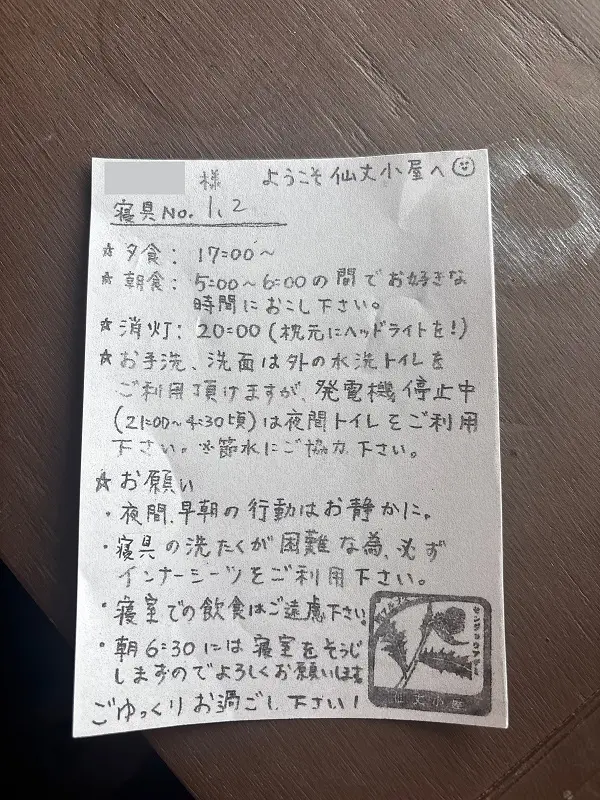 様 ようこそ仙丈小屋へ
寝具No. 1、2
☆夕食: 17:00〜
☆朝食: 5:00〜6:00の間でお好きな
時間におこし下さい。
☆消灯: 20:00(枕元にヘッドライトを!)
☆お手洗、洗面は外の水洗トイレを
ご利用頂けますが、発電機停止中
(21:00〜4:30頃)は夜間トイレをご利用
下さい。※節水にご協力下さい。
☆お願い
・夜間、早朝の行動はお静かに。
・寝具の洗たくが困難な為、必ず
インナーシーツをご利用下さい。
・寝室での飲食はご遠慮下さい。
・朝6:30には寝室をそうじ
しますのでよろしくお願いします
ごゆっくりお過ごし下さい!
仙丈小屋